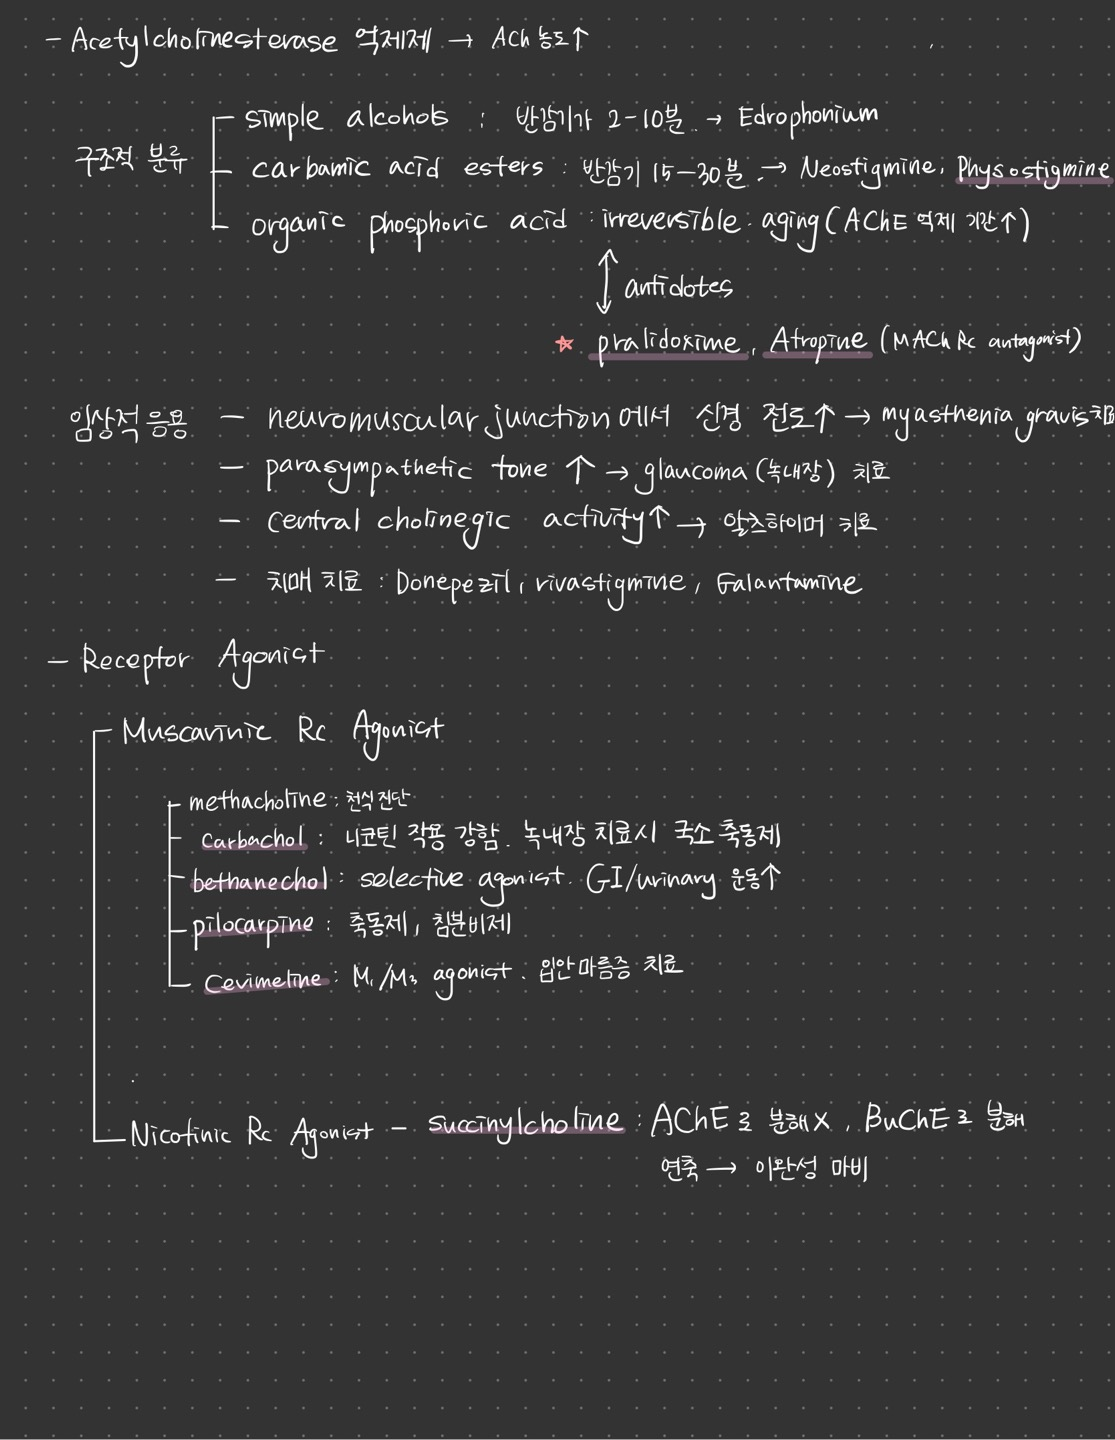 - Acetylcholinesterase 억제제 → ACh 농도↑
simple alcohols : 반감기가 2-10분. → Edrophonium
구조적 분류
carbamic acid esters : 반감기 15-30분 → Neostigmine, Physostigmine
organic phosphoric acid : irreversible. aging (AChE 억제 기간↑)
↕ antidotes
☆ pralidoxime, Atropine (MACh Rc antagonist)
임상적 응용 - neuromuscular junction에서 신경 전도↑ → myasthenia gravis치료
- parasympathetic tone ↑ → glaucoma (녹내장) 치료
- central cholinegic activity↑ → 알츠하이머 치료
- 치매 치료 : Donepezil, rivastigmine, Galantamine
- Receptor Agonist
Muscarinic Rc Agonist
methacholine : 천식진단
carbachol : 니코틴 작용 강함. 녹내장 치료시 국소 축동제
bethanechol : selective agonist. GI/urinary 운동↑
pilocarpine : 축동제, 침분비제
Cevimeline : M₁/M₃ agonist. 입안마름증 치료
Nicotinic Rc Agonist - succinylcholine : AChE로 분해X, BuChE로 분해
연축 → 이완성 마비